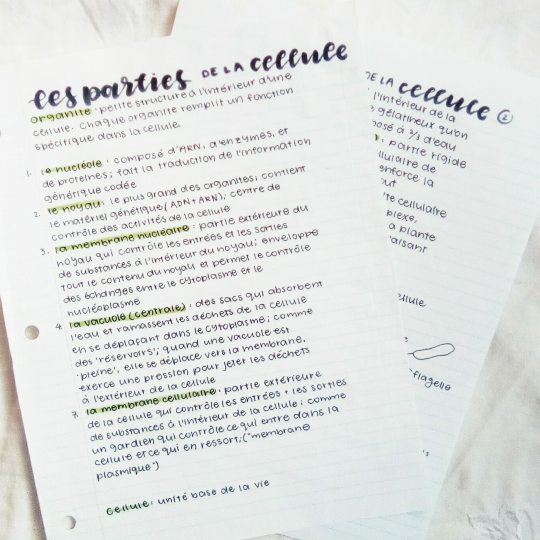 les parties DE LA cellule
organite : petite structure à l'intérieur d'une
cellule. Chaque organite remplit un fonction
spécifique dans la cellule.
1. le nucléole : composé d'ARN, d'enzymes, et
de protéines; fait la traduction de l'information
génétique codée
2. le noyau : le plus grand des organites; contient
le matériel génétique (ADN+ARN); centre de
contrôle des activités de la cellule
3. la membrane nucléaire : partie extérieure du
noyau qui contrôle les entrées et les sorties
de substances à l'intérieur du noyau; enveloppe
tout le contenu du noyau et permet le contrôle
des échanges entre le cytoplasme et le
nucléoplasme
4. la vacuole (centrale) : des sacs qui absorbent
l'eau et ramassent les déchets de la cellule
en se déplaçant dans le cytoplasme; comme
des 'réservoirs'; quand une vacuole est
'pleine', elle se déplace vers la membrane,
exerce une pression pour jeter les déchets
à l'extérieur de la cellule
7. la membrane cellulaire : partie extérieure
de la cellule qui contrôle les entrées + les sorties
de substances à l'intérieur de la cellule; comme
un gardien qui contrôle ce qui entre dans la
cellule et ce qui en ressort; ("membrane
plasmique")
cellule : unité base de la vie
DE LA cellule 2
l'intérieur de la
gélatineux qu'on
posé à 2/3 d'eau
: partie rigide
cellulaire de
enforce la
out
te cellulaire
plexe,
a plante
aisant
cellule
flagelle